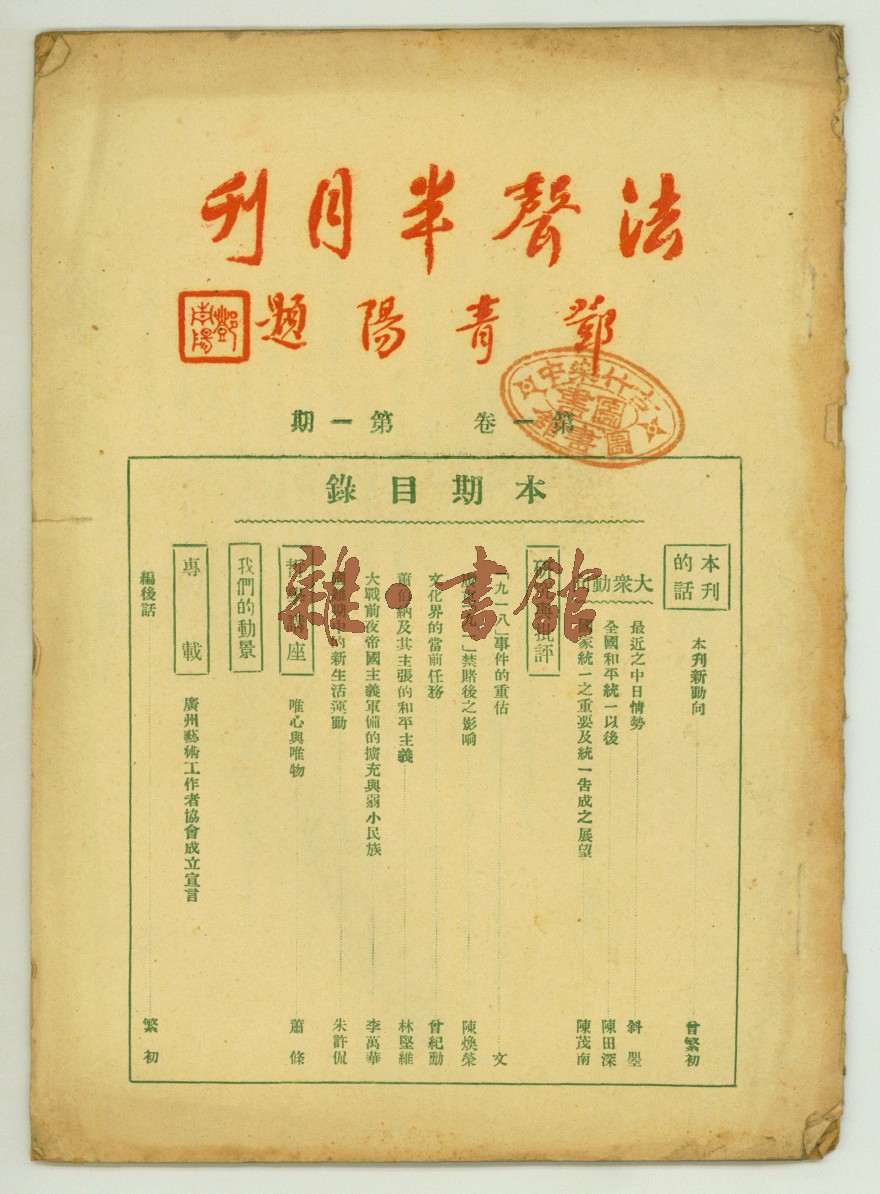 法聲半月刊
鄧青陽題
鄧青陽
第一卷 第一期
本期目錄
本刊的話
本刊新動向 曾繁初
大衆動向
最近之中日情勢 斜壂
全國和平統一以後 陳田深
國家統一之重要及統一告成之展望 陳茂南
研究與批評
「九一八」事件的重估 文
禁賭後之影响 陳煥榮
文化界的當前任務 曾紀勳
蕭伯納及其主張的和平主義 林堅維
大戰前夜帝國主義軍備的擴充與弱小民族 李萬華
中的新生活運動 朱許侃
哲學講座
唯心與唯物 蕭條
我們的動景
專載
廣州藝術工作者協會成立宣言
編後話 繁初
雜·書館